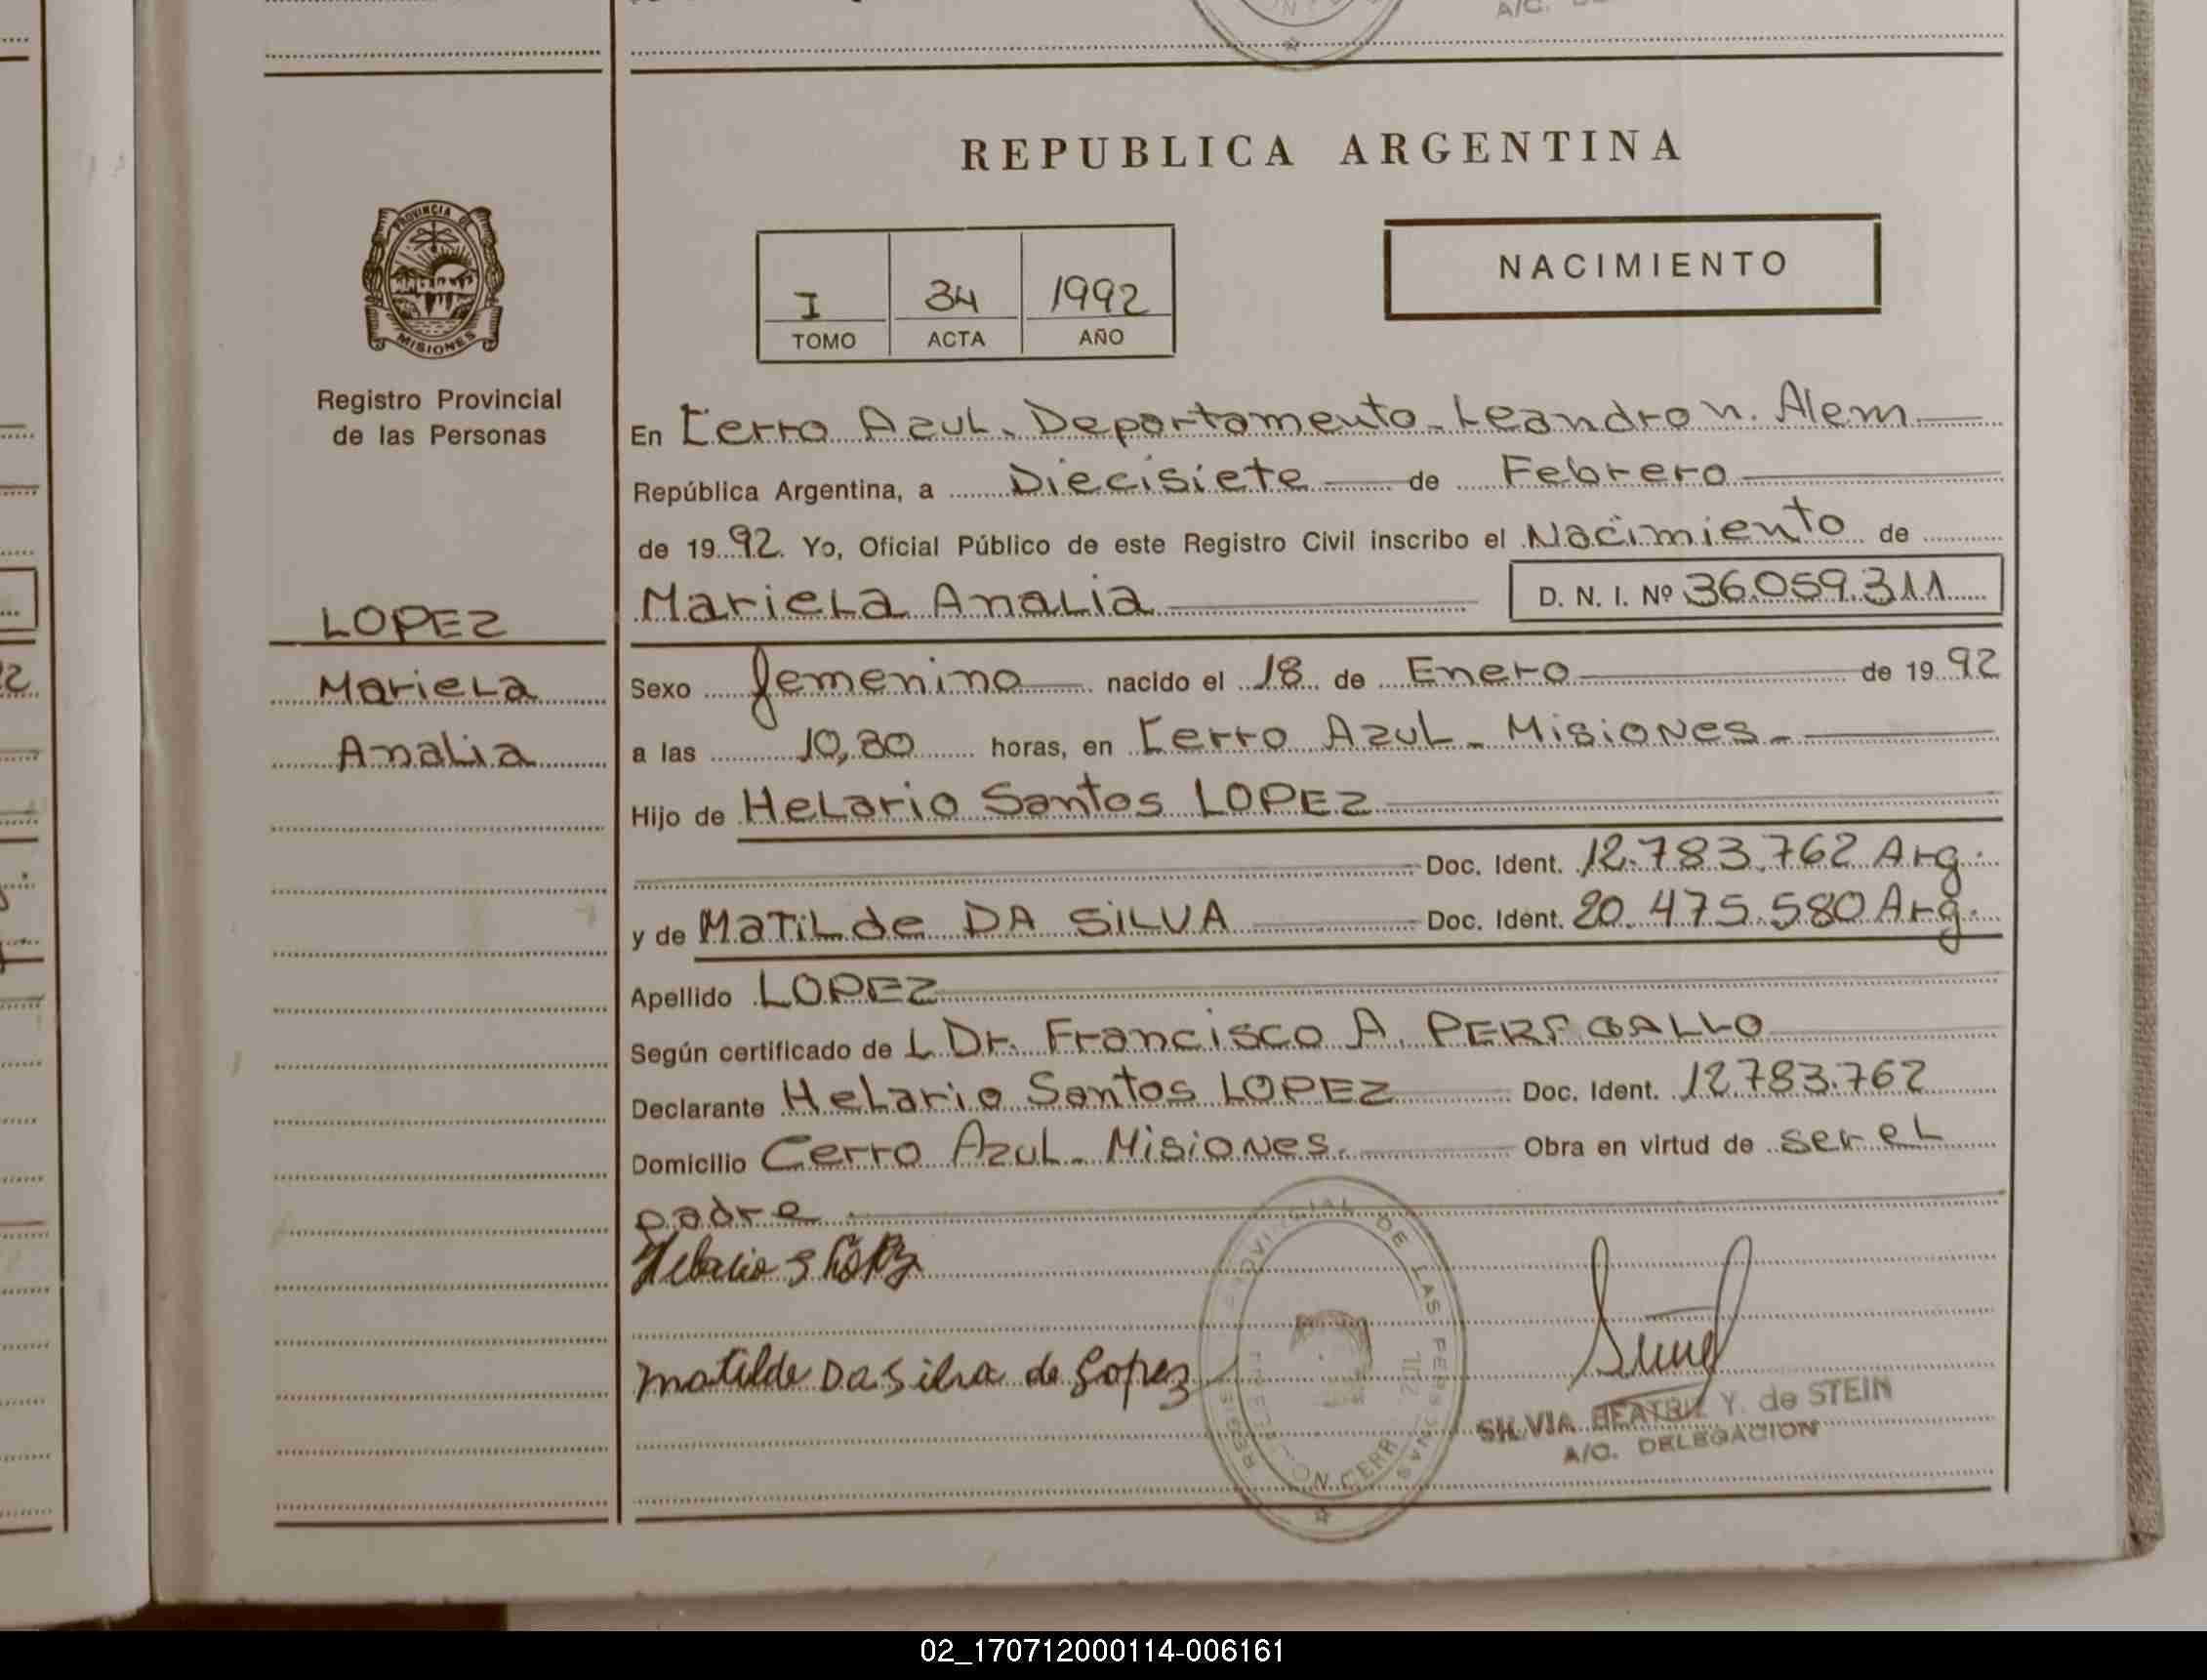 A/C.
REPUBLICA ARGENTINA
PROVINCIA DE
MISIONES
Registro Provincial
de las Personas
I 34 1992
TOMO ACTA AÑO
NACIMIENTO
LOPEZ
Mariela
Analia
En Cerro Azul. Departamento. Leandro N. Alem
República Argentina, a Diecisiete de Febrero
de 1992. Yo, Oficial Público de este Registro Civil inscribo el Nacimiento de
Mariela Analia D. N. I. Nº 36.059.311
Sexo femenino nacido el 18 de Enero de 1992
a las 10,30 horas, en Cerro Azul - Misiones -
Hijo de Helario Santos LOPEZ
Doc. Ident. 12.783.762 Arg.
y de Matilde DA SILVA Doc. Ident. 20.475.580 Arg.
Apellido LOPEZ
Según certificado de L Dr. Francisco A.
Declarante Helario Santos LOPEZ Doc. Ident. 12.783.762
Domicilio Cerro Azul - Misiones. Obra en virtud de ser el
padre
Helario S López
Matilde Da Silva de Lopez
DE LAS PERSONAS
CERR
SILVIA BEATRIZ Y. de STEIN
A/C. DELEGACION
02_170712000114-006161